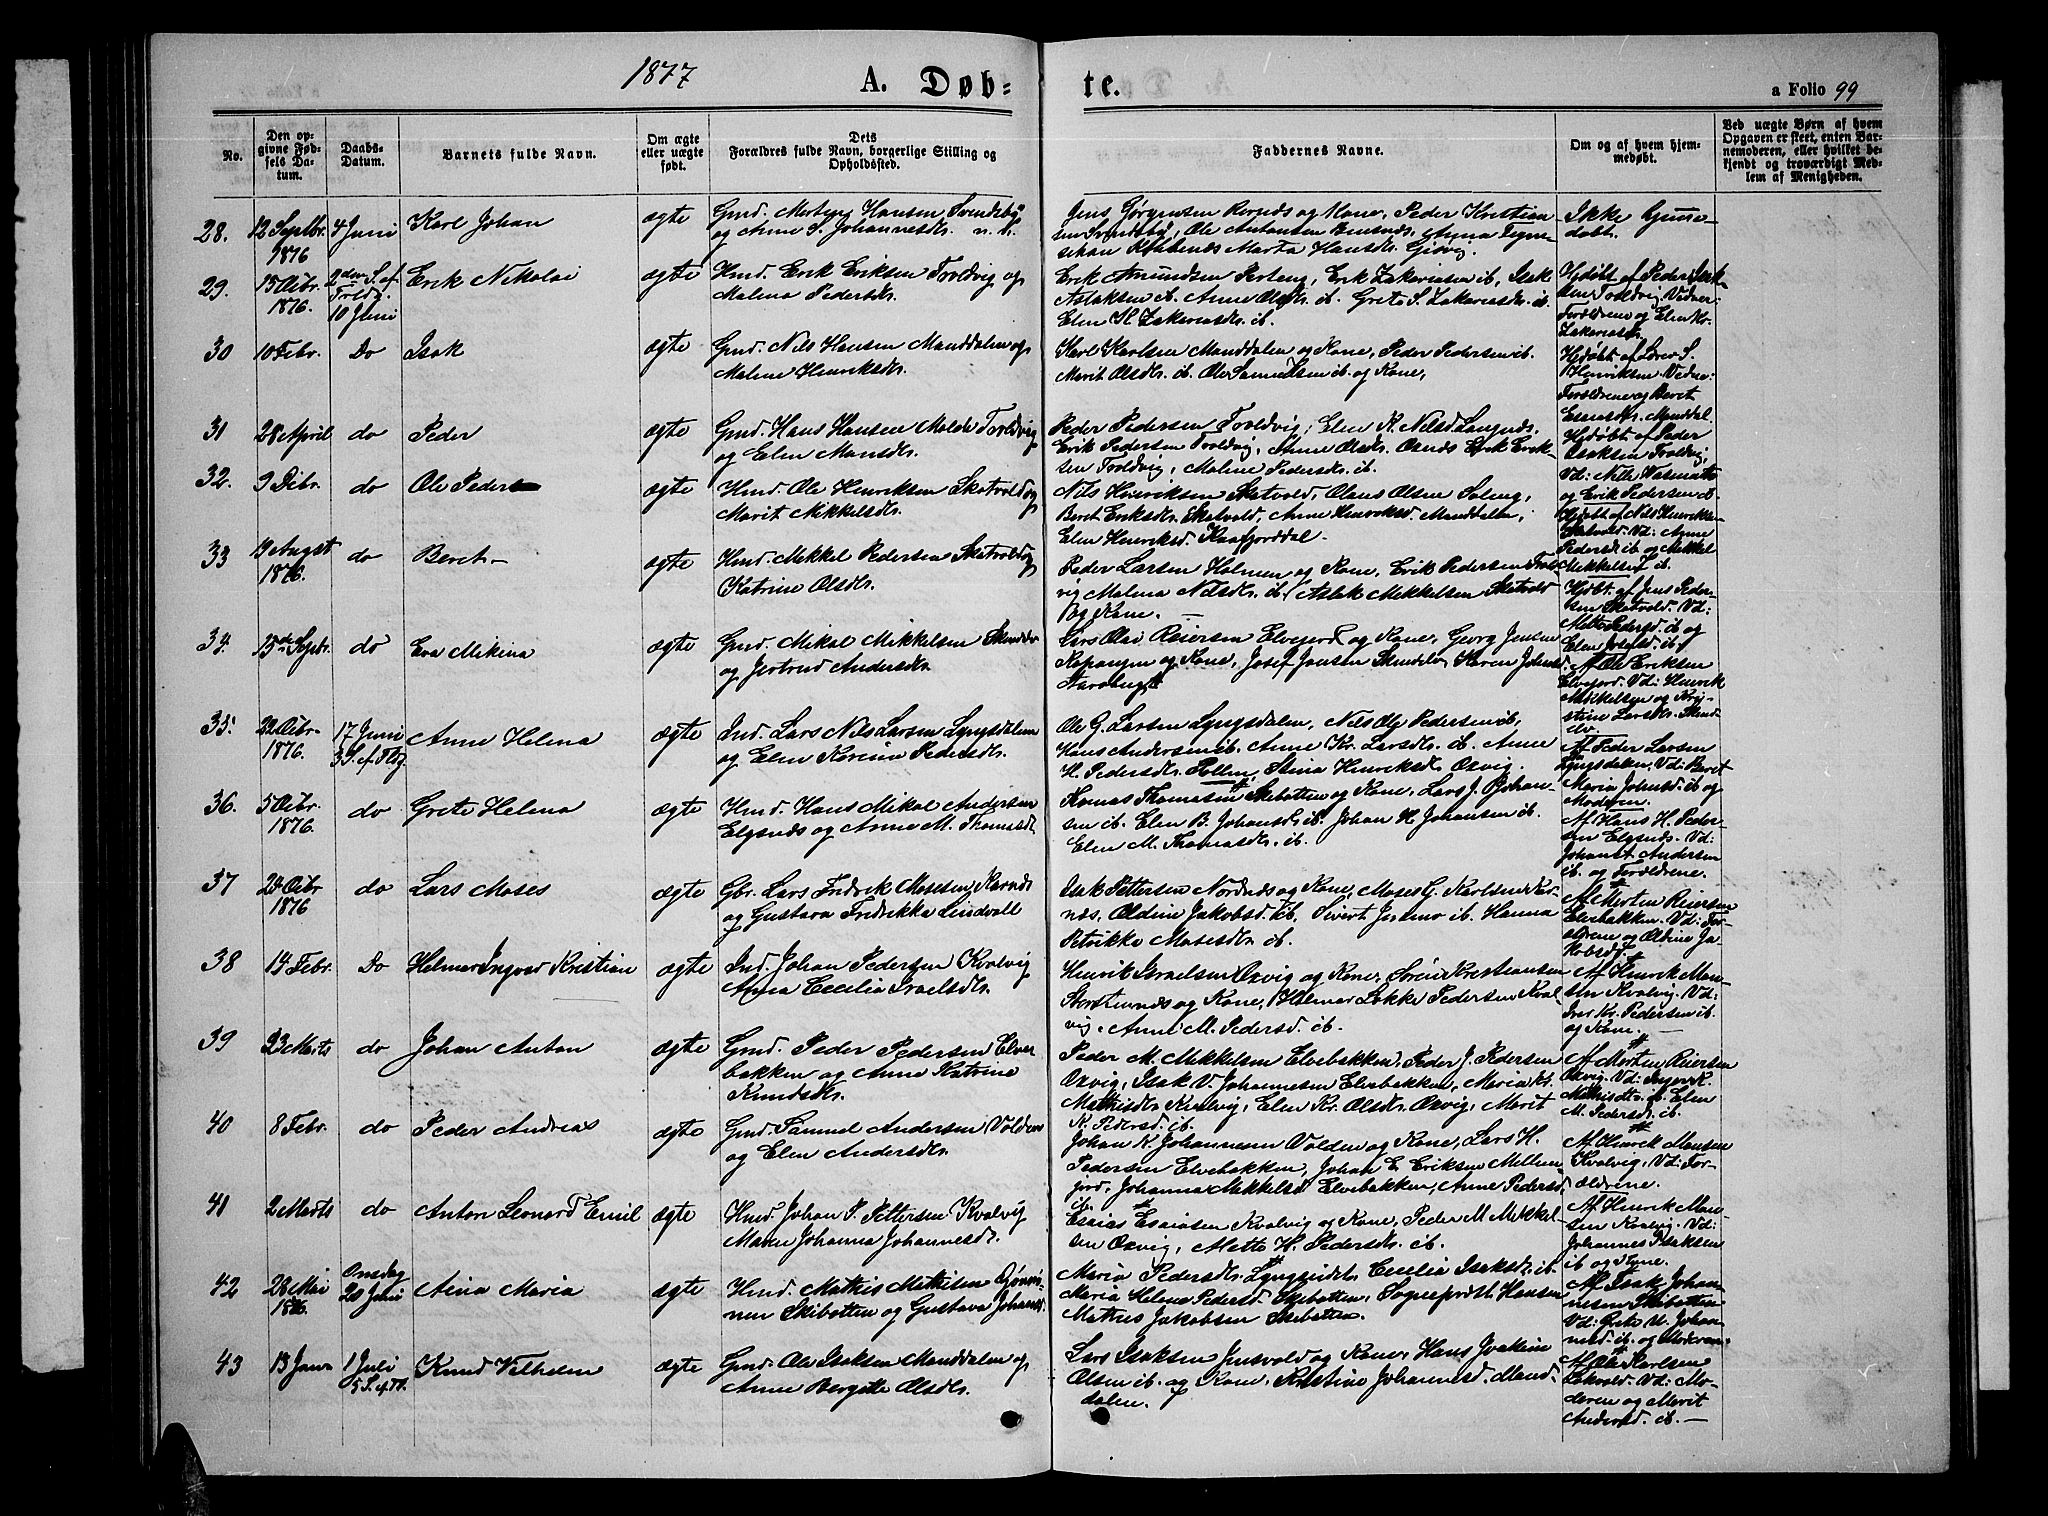 1877
A. Døb=
te.
a Folio 99
No.
Den op=
givne Fød=
sels Da=
tum.
Daabs=
Datum.
Barnets fulde Navn.
Om ægte
eller uægte
født.
Dets
Forældres fulde Navn, borgerlige Stilling og
Opholdssted.
Faddernes Navne.
Om og af hvem hjem=
medøbt.
Ved uægte Børn af hvem
Opgaven er skeet, enten Bar=
nemoderen, eller hvilket be=
kjendt og troværdigt Med=
lem af Menigheden.
28. 12 Septbr. 1876 4 Juni Karl Johan ægte
Gmd. Morten Hansen Svendsby
og Anne S. Johannesdr.
Jens Jørgensen og Kone, Peder Kristian-
sen Ole Antonsen
Marta Hansdr. Gjøvig.
Ikke hjemme-
døbt.
29. 15 Octbr. 1876. 2den S. ef. Trefd. 10 Juni Erik Nikolai ægte
Hmd. Erik Eriksen Troldvig og
Malena Pedersdr.
Erik Amundsen Erik Zakariasen ib, Isak
Aslaksen ib. Anne Olsdr. ib. Grete S. Zakariasdr. ib.
Elen M. Zakariasdr. ib.
Hjdøbt af Peder Isak-
sen Troldvig. Vidner:
Forældrene og Elen Kr.
Zakariasdr.
30 10 Febr. Do Isak ægte
Gmd. Nils Hansen Manddalen og
Malene Henriksdr.
Karl Karlsen Manddalen og Kone, Peder Pedersen ib.
Marit Olsdr. ib. Ole Samuelsen ib. og Kone,
Hjdøbt af S.
Henriksen. Vidner:
Forældrene og Beret
Esaiasdr. Manddal.
31 28 April do Peder ægte
Gmd. Hans Hansen Molde Troldvig
og Elen Monsdr.
Peder Pedersen Troldvig, Elen K. Nilsd.
Erik Pedersen Troldvig, Anne Olsdr. Erik Erik-
sen Troldvig, Malene Pedersdr. ib.
Hjdøbt af Peder
Isaksen Troldvig,
Vd: Nils
og Erik Pedersen ib.
32. 9 Dcbr. do Ole Peder ægte
Hmd. Ole Henriksen Skotvold og
Marit Mikkelsdr.
Nils Henriksen Skotvold, Olaus Olsen
Beret Eriksdr. Skotvold, Anne Henriksd. Manddalen,
Elen Henriksd. Kaafjorddal.
Hjdøbt af Nils Henriksen
Skotvold. Vd: Anne
Pedersd. ib og Mikkel
Mikkelsen ib.
33 19 Augst 1876. do Beret - ægte
Hmd. Mikkel Pedersen Skotvold og
Katrine Olsdr.
Peder Larsen Holmen og Kone, Erik Pedersen Trold-
vig Malena Nilsdr. ib. Aslak Mikkelsen Skotvold
og Kone. -
Hjdbt. af Jens Peder-
sen Skotvold. Vd:
Mette Pedersd. ib og
Elen ib.
34. 15de Septbr. do Eva Mikina ægte
Gmd. Mikal Mikkelsen
og Jertrud Andersdr.
Lars Olai Reiersen Elvejord og Kone, Georg Jensen
og Kone, Josef Jonsen Karen
Af Ole Eriksen
Elvejord. Vd: Henrik
Mikkelsen og Kri-
stine Larsdr.
35. 22 Octbr. 1876. 17 Juni 3 S. ef. Anne Helena ægte
Ind. Lars Nils Larsen Lyngsdalen
og Elen Karina Pedersdr.
Ole G. Larsen Lyngsdalen, Nils Ole Pedersen ib,
Hans Andersen ib. Anne Kr. Larsdr. ib. Anne
H. Pedersdr. Pollen, Stina Henriksdr. Oxvig.
Af Peder Larsen
Lyngsdalen. Vd: Beret
Maria Johnsd. ib og
Moderen.
36. 5 Octbr. 1876. do Grete Helena ægte
Hmd. Hans Mikal Andersen
Elgsnæs og Anne M. Thomasdr.
Tomas Thomasen Skibotten og Kone, Lars J. Johan-
sen ib. Elen B. Johansdr. ib. Johan H. Johansen ib.
Elen M. Thomasdr. ib.
Af Hans H. Peder-
sen Elgsnæs. Vd:
Johanes Andersen
ib. og Forældrene.
37 24 Octbr 1876 do Lars Moses ægte
Gbr. Lars Fredrik Mosesen
og Gustava Fredrikka Lindvall
Isak Pettersen Nordnæs og Kone, Moses G. Karlsen
næs. Oldine Jakobsd. ib. Sivert ib. Hanna
Petrikke Mosesdr. ib.
Af Morten Reiersen
Elvebakken. Vd: For-
ældrene og Oldine Ja-
kobsd.
38 14 Febr. Do Helmer Ingvar Kristian ægte
Ind. Johan Pedersen Kvalvig
Anna Cecilia Israelsdr.
Henrik Israelsen Oxvig og Kone, Sørin Kristiansen
Storsteinnæs og Kone, Helmer Løkke Pedersen Kval-
vig. Anne M. Pedersd. ib.
Af Henrik Mon-
sen Kvalvig. Vd:
Iver Kr. Pedersen ib.
og Kone. -
39 23 Marts do Johan Anton ægte
Gmd. Peder Pedersen Elve-
bakken og Anne Katrine
Knudsdr.
Peder M. Mikkelsen Elvebakken, Peder J. Pedersen
Oxvig, Isak V. Johannesen Elvebakken, Maria Kr.
Mathisdr. Kvalvig, Elen Kr. Olsdr. Oxvig, Marit
K. Pedersd. ib.
Af Morten Reiersen
Oxvig. Vd: K.
Mathisdr. ib. Elen
M. Pedersdr. ib.
40 8 Febr. do Peder Andreas ægte
Gmd. Samuel Andersen Volden
og Elen Andersdr.
Johan K. Johannesen Volden og Kone, Lars H.
Pedersen Elvebakken, Johan E. Eriksen Mellem-
jord, Johanna Mikkelsd. Elvebakken, Anne Pedersd.
ib.
Af Henrik Monsen
Kvalvig, Vd: For-
ældrene.
41 2 Marts do Anton Leonard Emil ægte
Hmd. Johan P. Pettersen Kvalvig
Maren Johanna Johannesdr.
Esaias Esaiasen Kvalvig og Kone, Peder M. Mikkel-
sen Oxvig, Mette H. Pedersdr. ib.
Af Henrik Mon-
sen Kvalvig. Vd:
Johannes Isaksen
ib og
42 28 Mai 1876. Onsdag 20 Juni Aina Maria ægte
Hmd. Mathis Mathisen
Skibotten og Gustava Johansd.
Maria Pedersdr. Lyngseidet. Cecilia Isaksdr. ib.
Maria Helene Pedersd. Skibotten, Sogneprest Hansen
Mathis Jakobsen Skibotten.
Af Isak Johan-
nesen Skibotten
Vd: M. Johan-
nesd. ib. og Moderen
43 13 Janr 1 Juli 5 S. ef. Tr. Knud Vilhelm ægte
Gmd. Ole Isaksen Manddalen og
Anne Bergitte Olsdr.
Lars Isaksen og Kone, Hans Joakim
Olsen ib. og Kone, Kristine Johannesd. Mand-
dalen.
Af Ole Karlsen
Vd: Mo-
deren og Merit
Andersd. ib. -